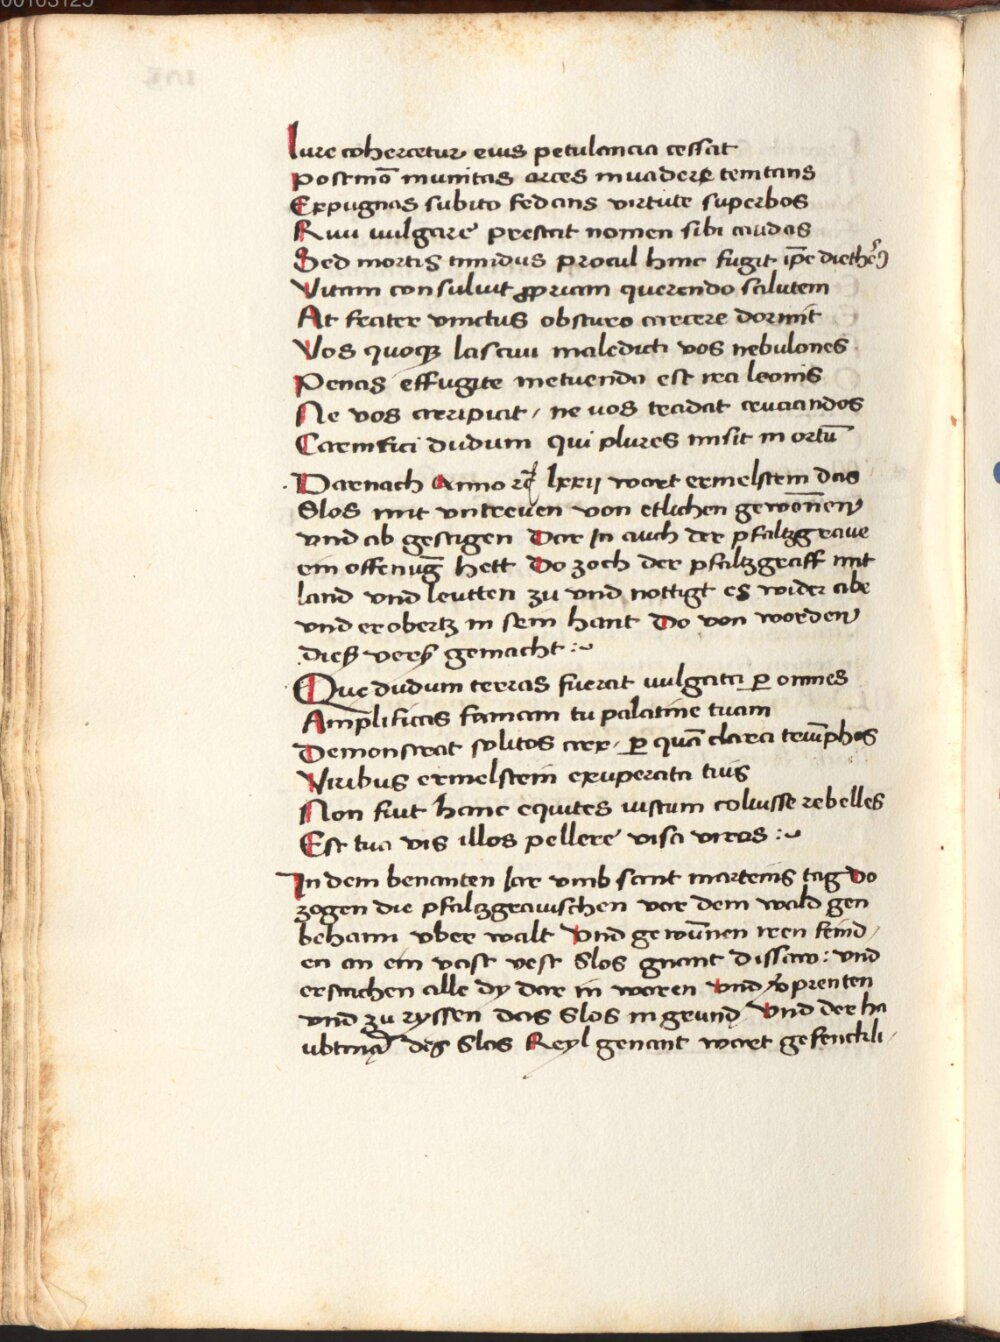 00103125
Iure cohercetur eius petulancia cessat
Postmō munitas arces inuadere temtans
Expugnas subito fedans virtute superbos
Ruu uulgare prestat nomen sibi caudas
Sed mortis timidus procul hinc fugit ip̄e diether9
Vitam consuluit ꝓpriam querendo salutem
At frater vinctus obscuro carcere dormit
Vos quoqꝫ lasciui maledicti vos nebulones
Penas effugite metuenda est ira leonis
Ne vos arripiat / ne uos tradat cruciandos
Carnifici dudum qui plures misit in ortū
Darnach Anno rc̄ lxxij wart ermelstein das
Slos mit vntreven von etlichen gewōnen
vnd ab gestigen Dar In auch der pfaltzgraue
ein offenūg hett Do zoch der pfaltzgraff mit
land vnd leutten zu vnd nottigt es wider abe
vnd erobertz in sein hant Do von worden
dieß verß gemacht :~
Que dudum terras fuerat uulgata ꝑ omnes
Amplificas famam tu palatine tuam
Demonstrat solitos arx ꝑ quā clara triūphos
Viribus ermelstein exuperata tuis
Non fuit hanc equites iustum coluisse rebelles
Est tua vis illos pellere visa viros :~
In dem benanten Iar vmb sant marteins tag Do
zogen die pfalzgrauischen vor dem wald gen
behann vber walt Vnd gewūnen iren feind /
en an ein vast vest Slos gnant dissaw : vnd
erstachen alle dy dar in waren Vnd v̓prenten
vnd zu ryssen das Slos in grund Vnd der ha
ubtmā des Slos Reyl genant wart gefenckli /